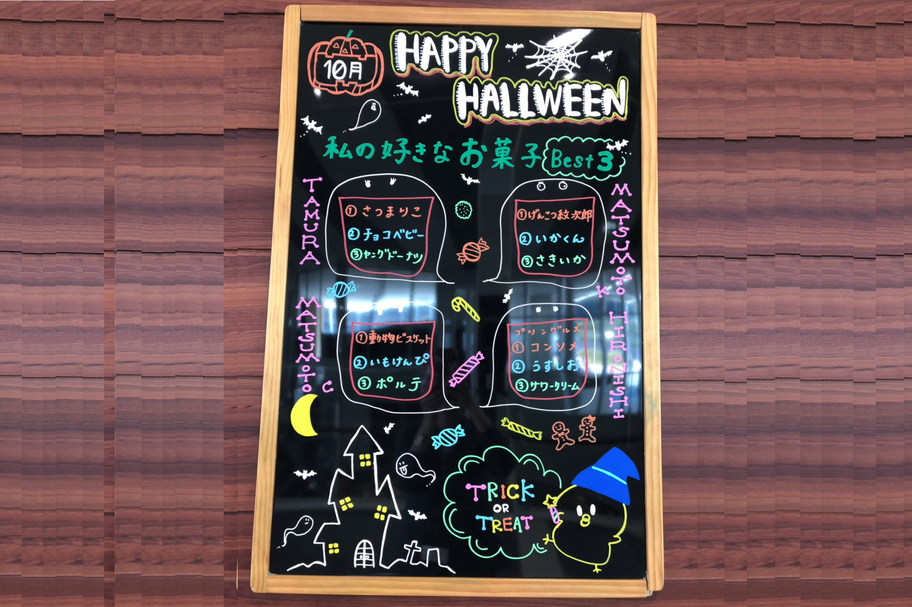 10月
HAPPY
HALLWEEN
私の好きなお菓子 Best3
TAMURA
①さつまりこ
②チョコベビー
③ヤングドーナツ
MATSUMOTO K
①げんこつ紋次郎
②いかくん
③さきいか
MATSUMOTO C
①動物ビスケット
②いもけんぴ
③ポルテ
HIRONISHI
プリングルズ
①コンソメ
②うすしお
③サワークリーム
TRICK
OR
TREAT